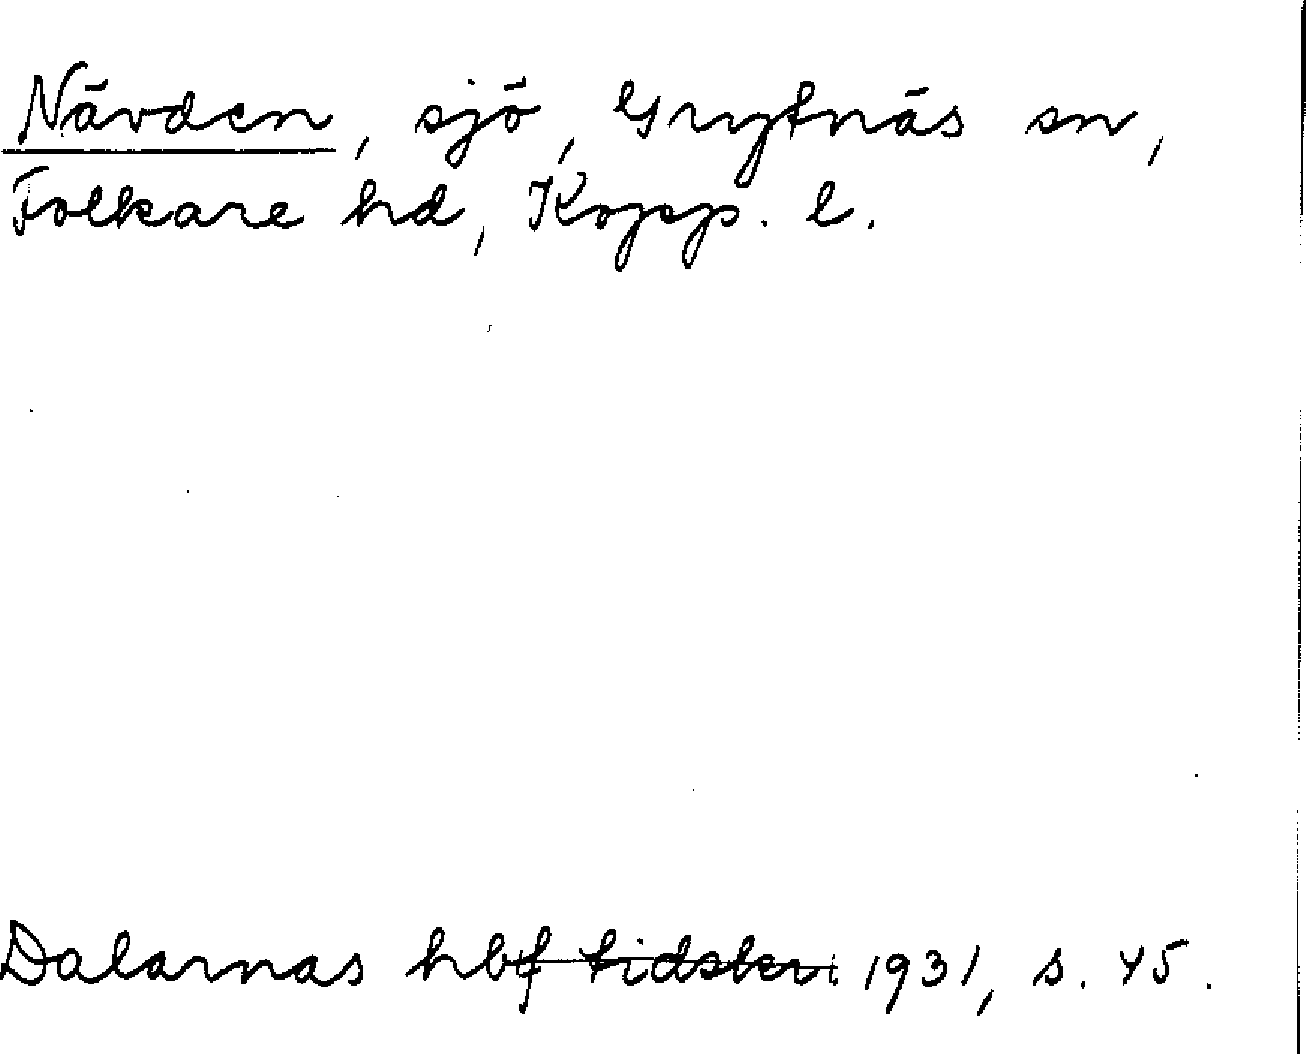 Nävden, sjö, Grytnäs sn,
Folkare hd, Kopp. l.
Dalarnas hbf tidskr. 1931, s. 45.